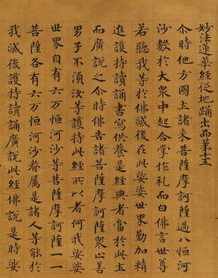 妙法蓮華經從地踊出品第十五
尒時他方國土諸來菩薩摩訶薩過八恒河
沙數於大衆中起合掌作礼而白佛言世尊
若聽我等於佛滅後在此娑婆世界勤加精
進護持讀誦書寫供養是經典者當於此土
而廣說之尒時佛告諸菩薩摩訶薩衆止善
男子不須汝等護持此經所以者何我娑婆
世界自有六万恒河沙等菩薩摩訶薩一一
菩薩各有六万恒河沙眷屬是諸人等能於
我滅後護持讀誦廣說此經佛說是時娑